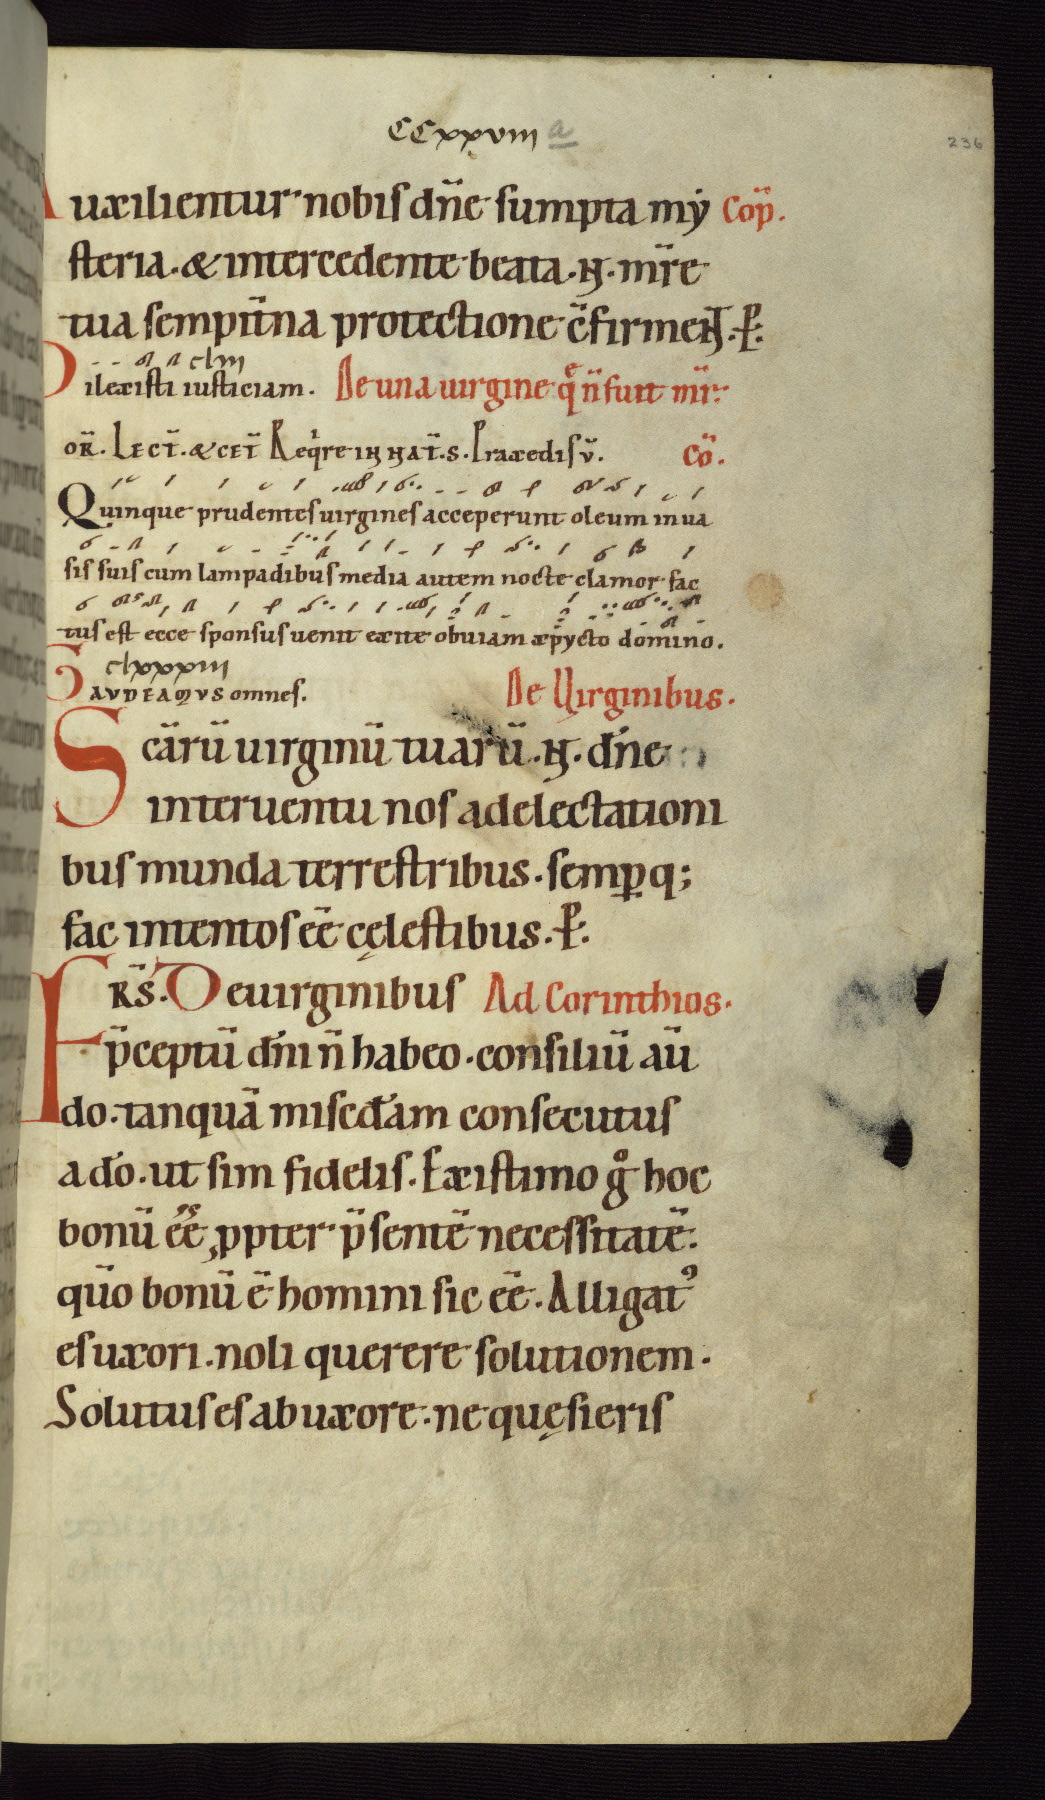 CCxxviii a
236
Auxilientur nobis dn̄e sumpta my Cōp.
steria. & intercedente beata .N. mr̄e
tua sempit̄na protectione c̄firment. P̄.
cliii
Dilexisti iusticiam. De una uirgine q̄ n̄ fuit mr̄.
or̄. Lect̄. & cet̄ Reqͥre in nat̄. S. Praxedis v̄. Cō.
Quinque prudentes uirgines acceperunt oleum in ua
sis suis cum lampadibus media autem nocte clamor fac
tus est ecce sponsus uenit exite obuiam xpycto domino.
clxxxiii
Gaudeamus omnes. De Uirginibus.
Scārū uirginū tuarū .N. dn̄e
interuentu nos a delectationi
bus munda terrestribus. semp̲q;
fac intentos eē cęlestibus. P̄.
FRS̄. De uirginibus Ad Corinthios.
p̄ceptū dn̄i n̄ habeo. consiliū aū
do. tanquā misc̄dam consecutus
a dō. ut sim fidelis. Existimo gͦ hoc
bonū eē ꝓpter p̄sentē necessitatē.
qūo bonū ē homini sic eē. Alligatꝰ
es uxori. noli querere solutionem.
Solutus es ab uxore. ne quęsieris